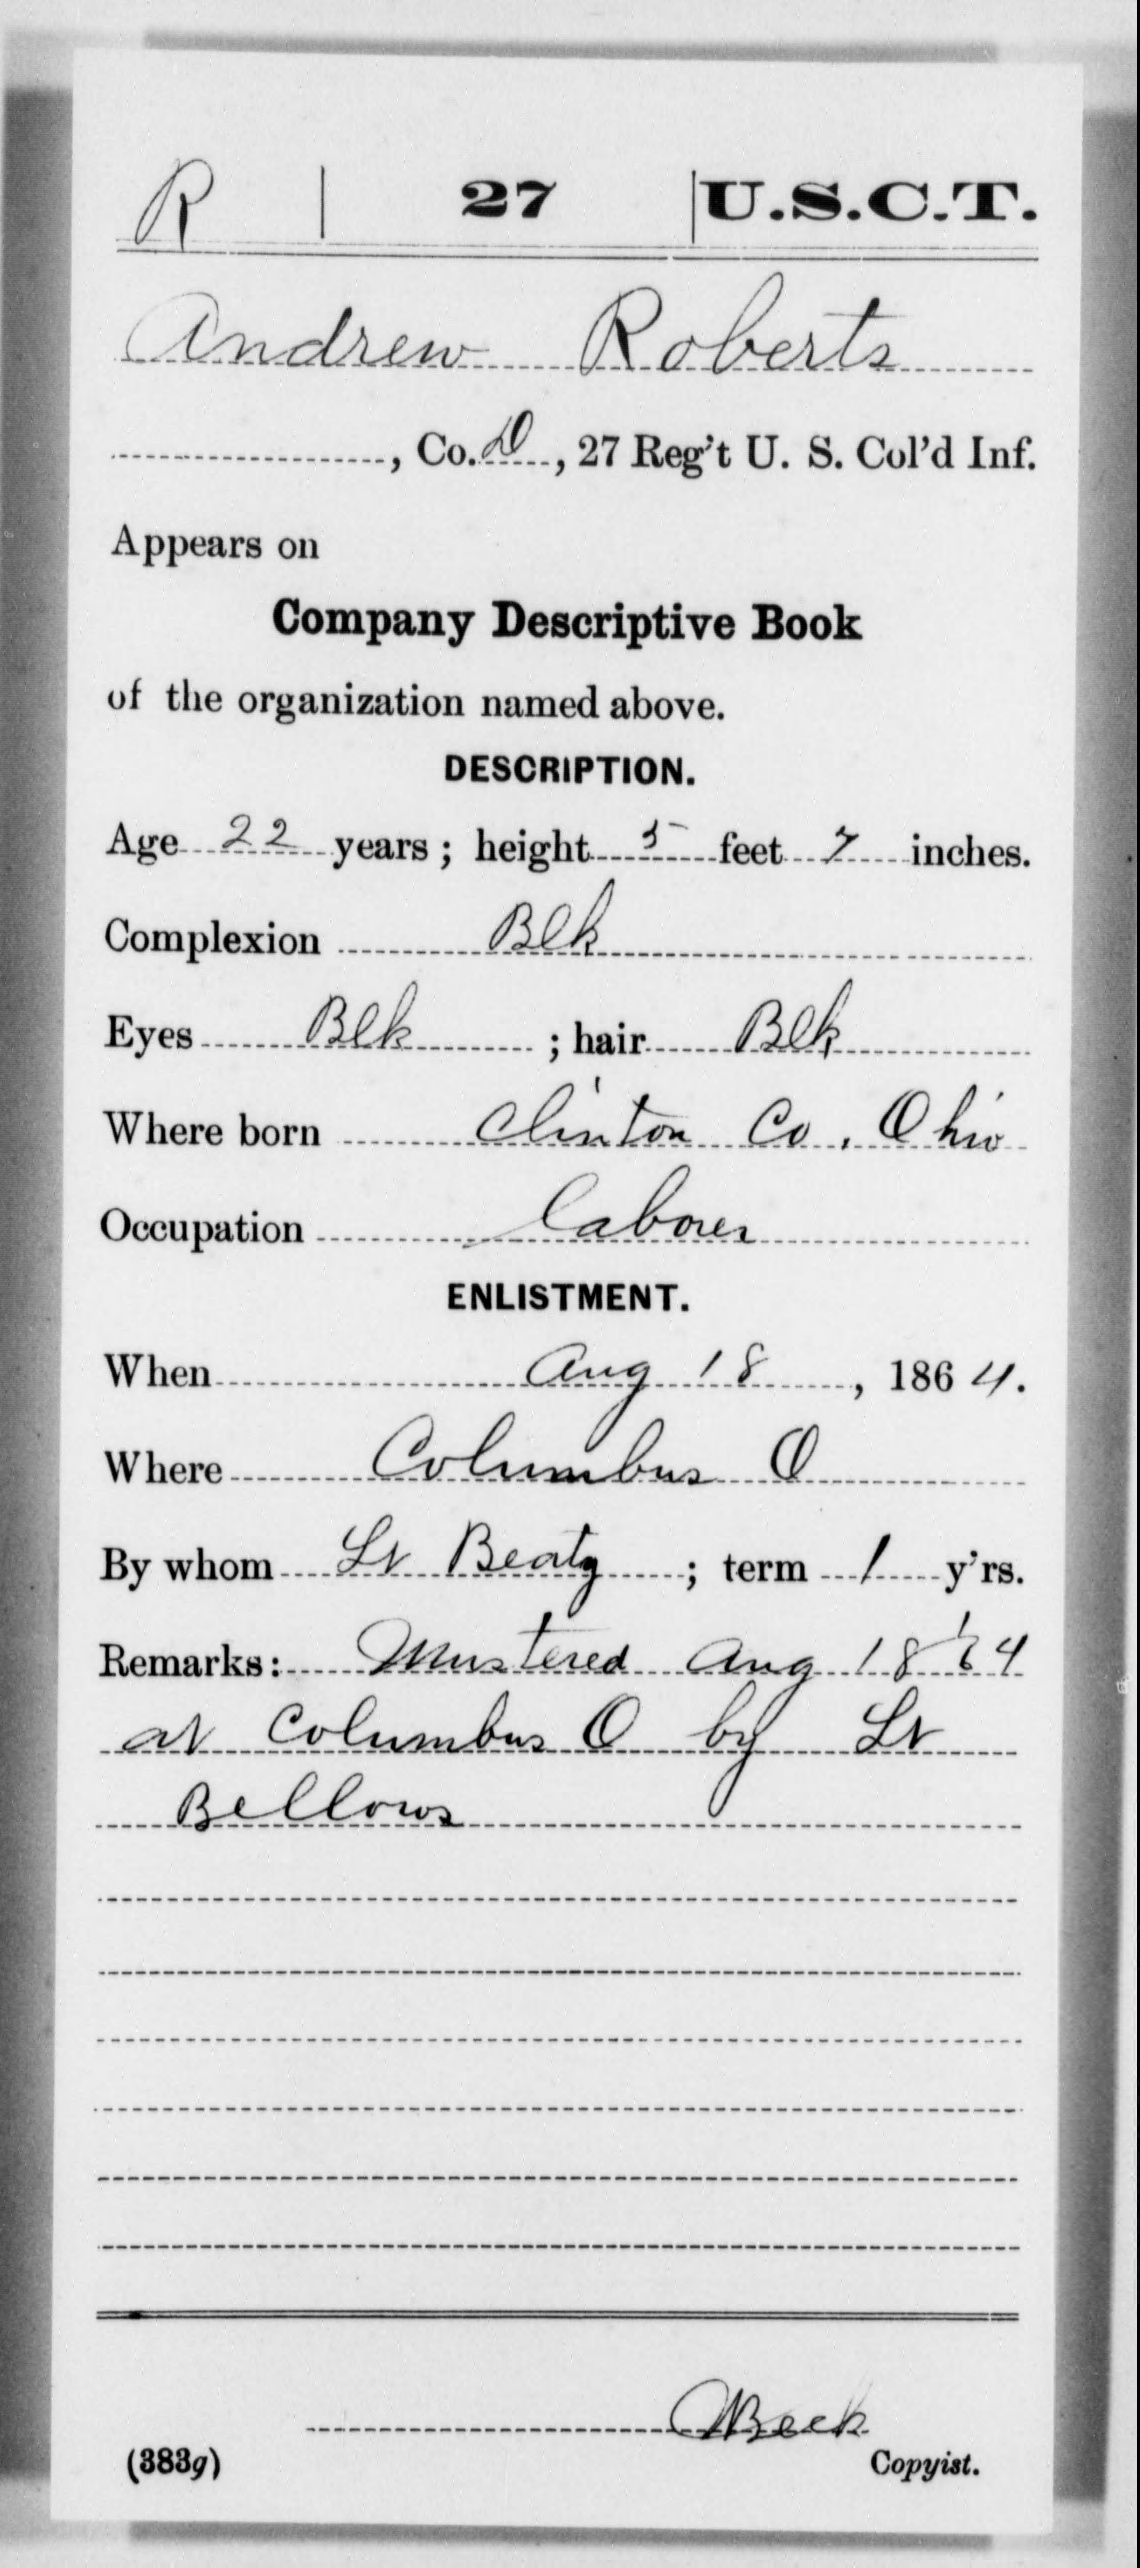 R | 27 | U.S.C.T.
Andrew Roberts
, Co. D, 27 Reg't U. S. Col'd Inf.
Appears on
Company Descriptive Book
of the organization named above.
DESCRIPTION.
Age 22 years; height 5 feet 7 inches.
Complexion Blk
Eyes Blk ; hair Blk
Where born Clinton Co, Ohio
Occupation laborer
ENLISTMENT.
When Aug 18, 1864.
Where Columbus O
By whom Lt Beaty ; term 1 y'rs.
Remarks: Mustered Aug 18 '64
at Columbus O by Lt
Bellows
Beck
(383g) Copyist.